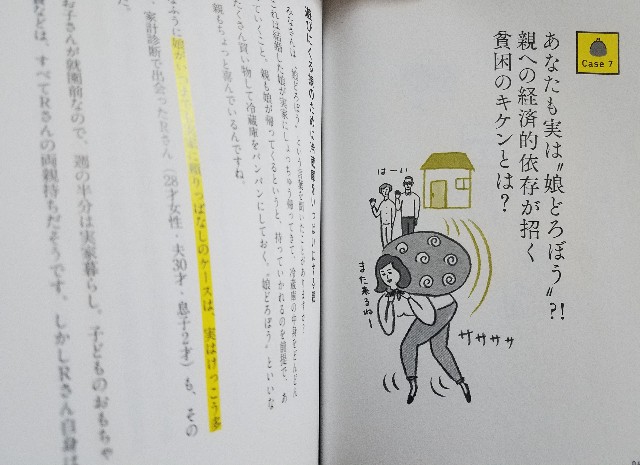 Case 7
あなたも実は"娘どろぼう"?!
親への経済的依存が招く
貧困のキケンとは?
はーい
また来るねー
ササササ
みなさんは、"娘どろぼう"という言葉を聞いたことがありますか?
これは結婚した娘が実家にしょっちゅう帰ってきて、冷蔵庫の中身をどんどん
ていくこと。親も娘が帰ってくるというと、持っていかれるのを前提で、あ
たくさん買い物して冷蔵庫をパンパンにしておく。"娘どろぼう"といいな
親もちょっと喜んでいるんですね。
頼りっぱなしのケースは、実はけっこう多
家計診断で出会ったRさん(28才女性・夫30才・息子2才)も、その
お子さんが就園前なので、週の半分は実家暮らし。子どものおもちゃ
どは、すべてRさんの両親持ちだそうです。しかしRさん自身は